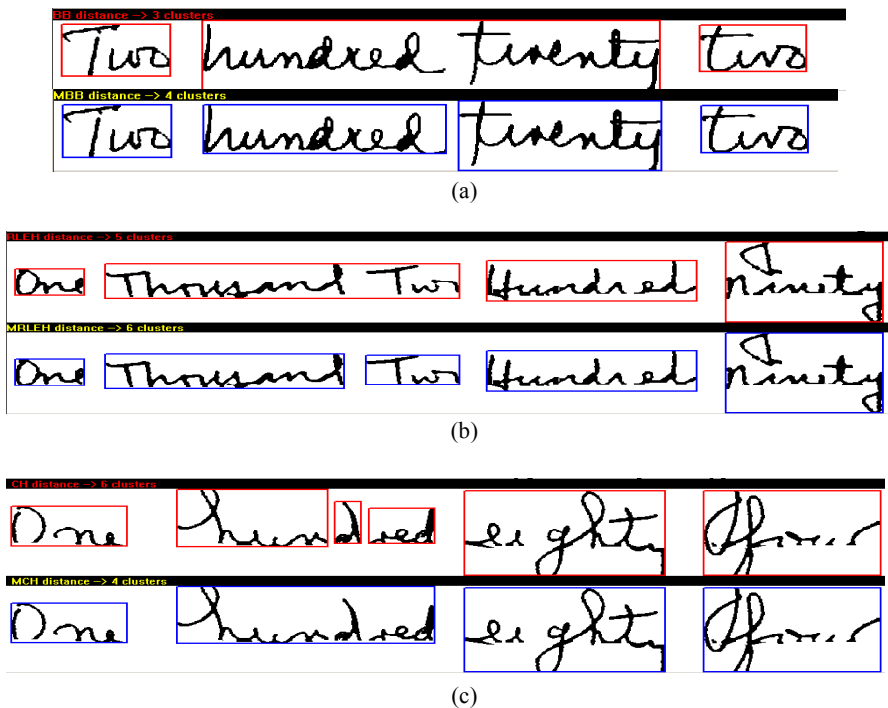 BB distance -> 3 clusters
Two hundred twenty two
MBB distance -> 4 clusters
Two hundred twenty two
(a)
RLEH distance -> 5 clusters
One Thousand Two Hundred Ninety
MRLEH distance -> 6 clusters
One Thousand Two Hundred Ninety
(b)
CH distance -> 6 clusters
One hundred eighty four
MCH distance -> 4 clusters
One hundred eighty four
(c)